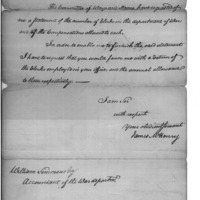 The Committee of Ways and Means have required of me
a statement of the number of Clerks in the department of War
and the Compensations allowed to each.
In order to enable me to furnish the said statement
I have to request that you would favor me with a return of
the Clerks employed in your Office, and the annual allowance
to them respectively.
I am Sir
with respect
Your obedient Servant
James McHenry
William Simmons Esqr
Accountant of the War department